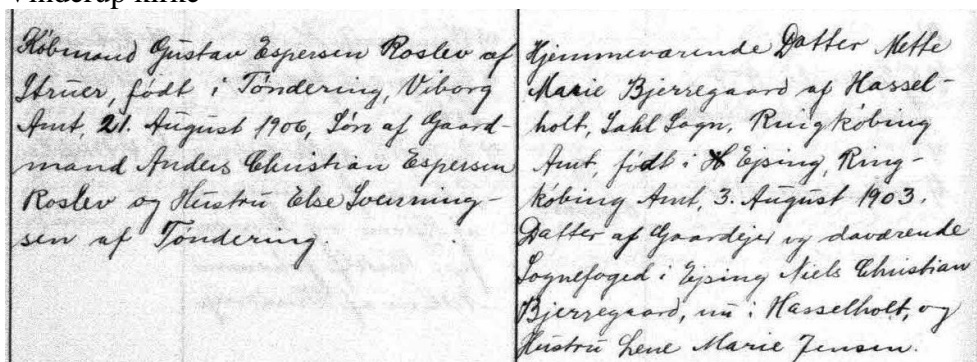 Vinderup kirke
Købmand Gustav Espersen Roslev af
Struer, født i Tøndering, Viborg
Amt, 21. August 1906, Søn af Gaard-
mand Anders Christian Espersen
Roslev og Hustru Else Lourning-
sen af Tøndering.
Hjemmeværende Datter Mette
Marie Bjerregaard af Hassel-
holt, Sahl Sogn, Ringkøbing
Amt, født i Ejsing, Ring-
købing Amt, 3. August 1903.
Datter af Gaardejer og daværende
Sognefoged i Ejsing Niels Christian
Bjerregaard, nu i Hasselholt, og
Hustru Lene Marie Jensen.